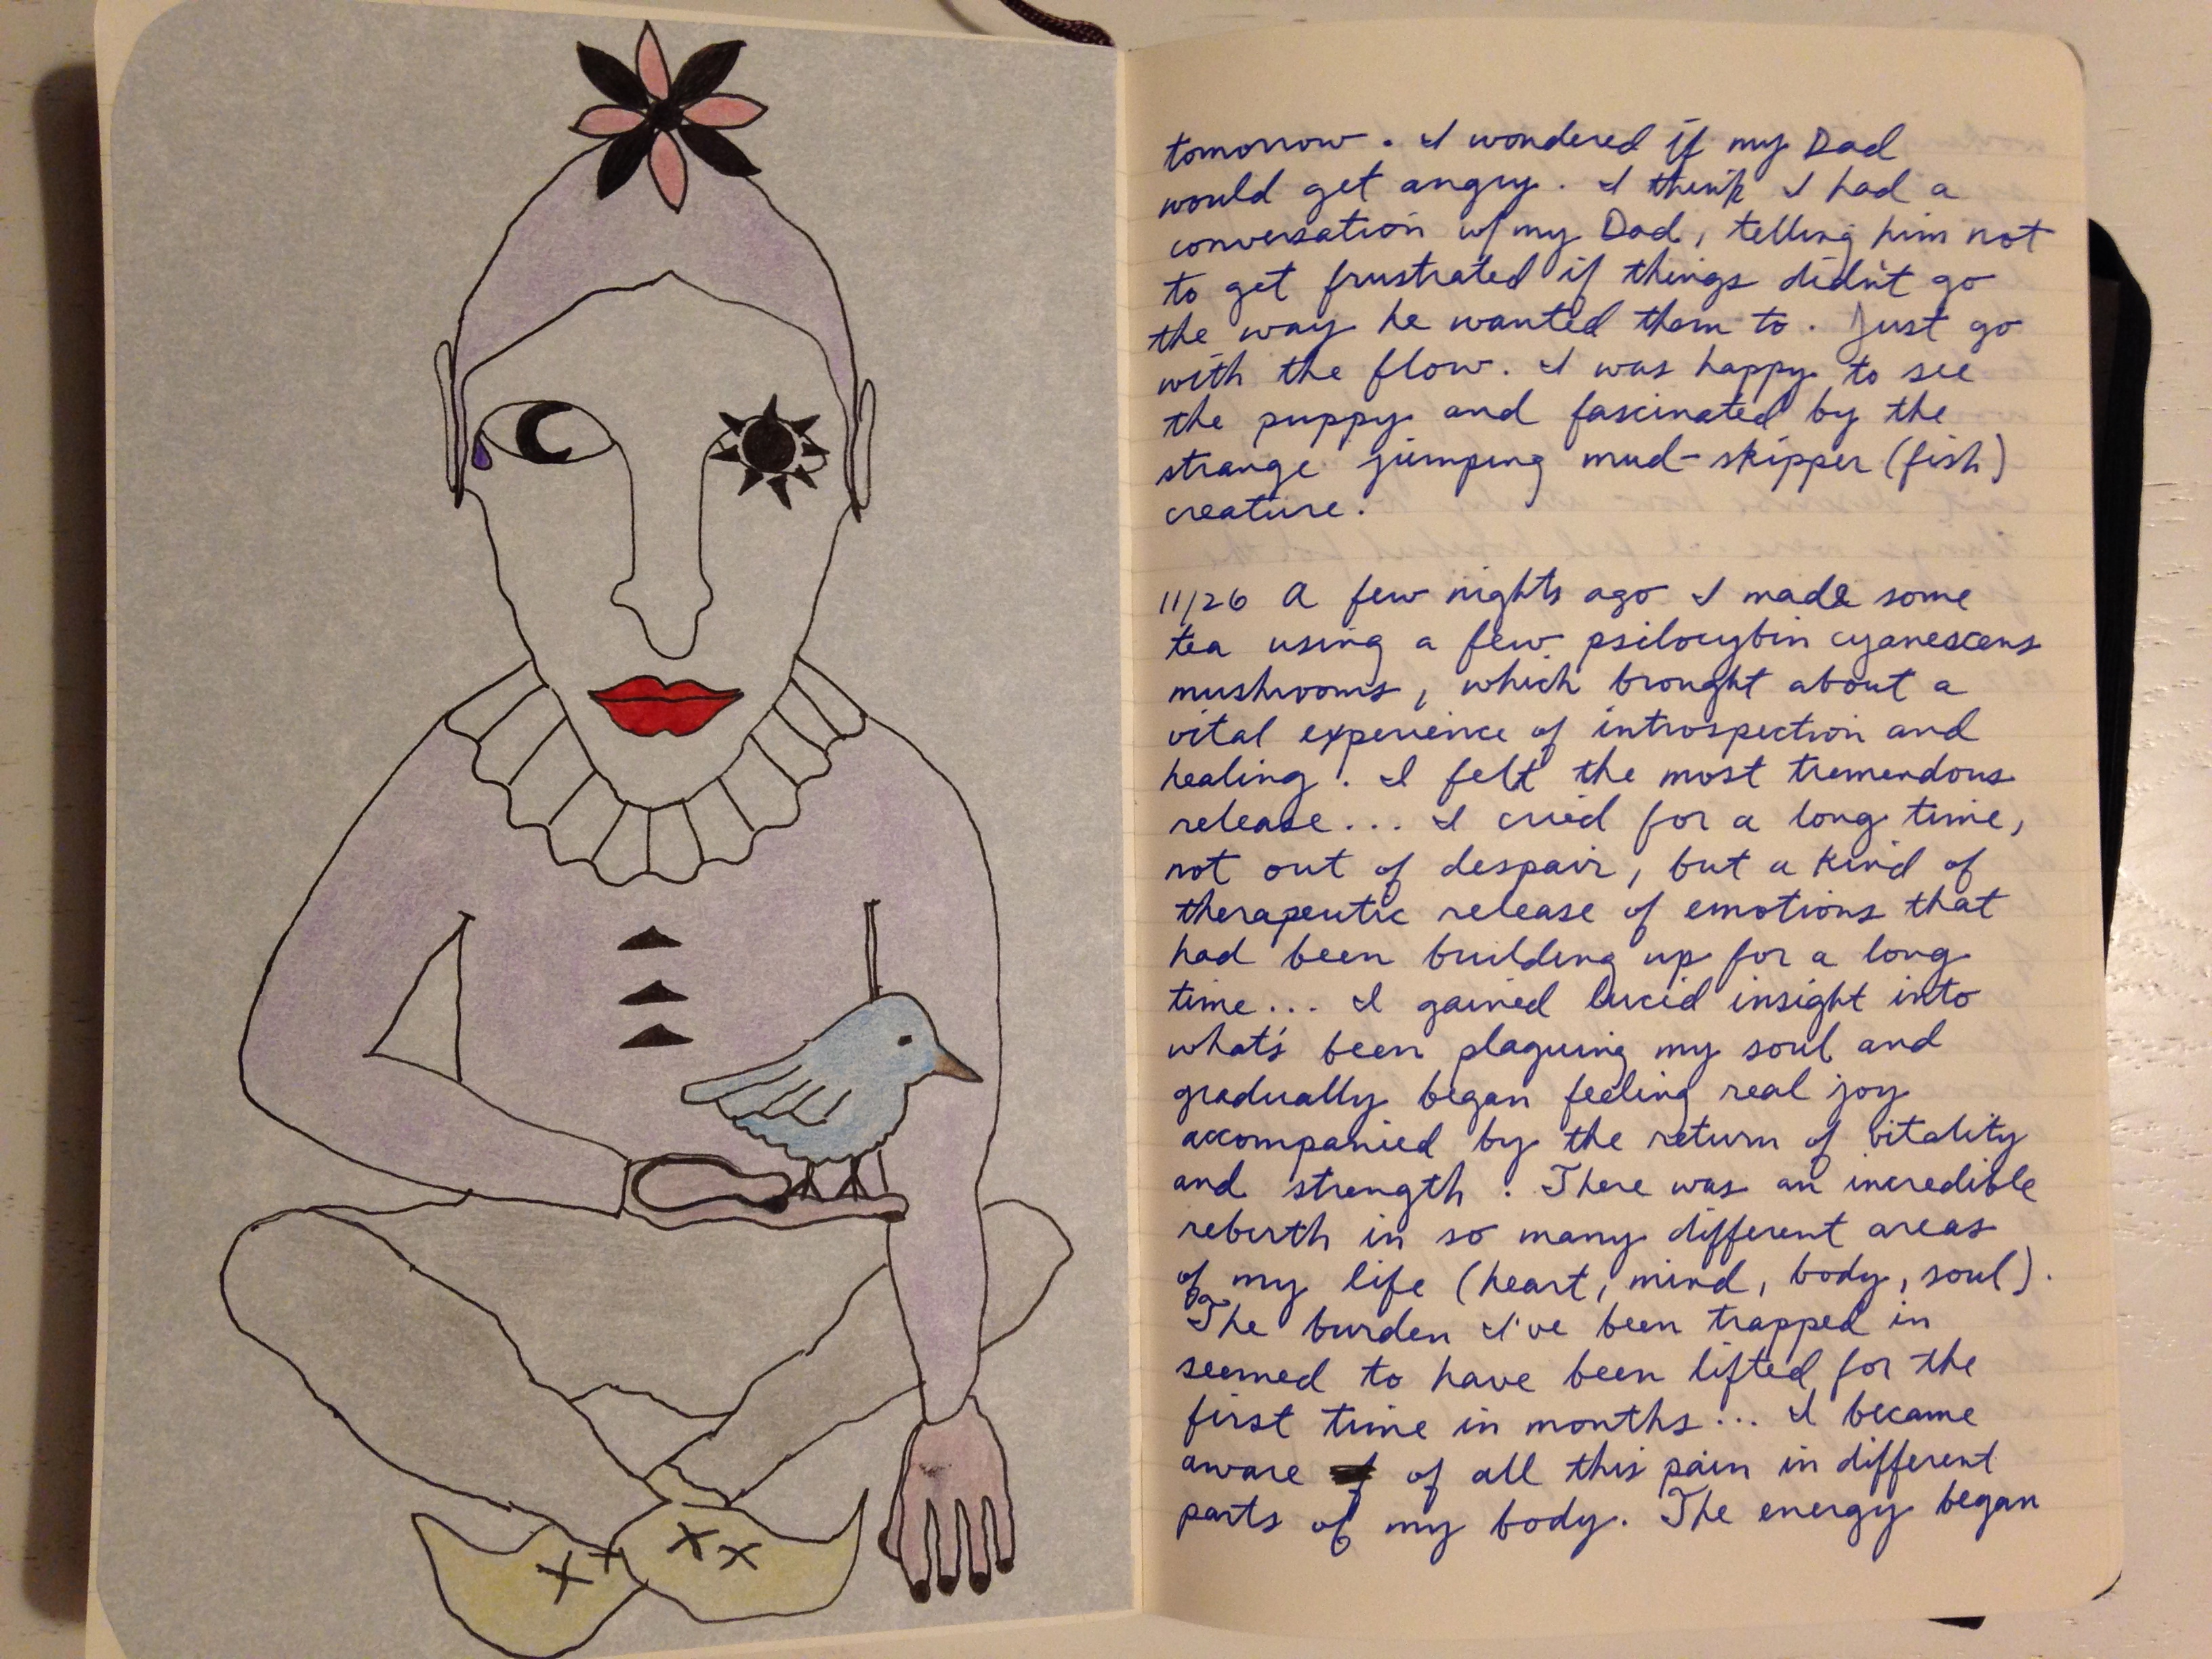 tomorrow. I wondered if my Dad
would get angry. I think I had a
conversation w/ my Dad, telling him not
to get frustrated if things didn't go
the way he wanted them to. Just go
with the flow. I was happy to see
the puppy and fascinated by the
strange jumping mud-skipper (fish)
creature.
11/26 A few nights ago I made some
tea using a few psilocybin cyanescens
mushrooms, which brought about a
vital experience of introspection and
healing. I felt the most tremendous
release... I cried for a long time,
not out of despair, but a kind of
therapeutic release of emotions that
had been building up for a long
time... I gained lucid insight into
what's been plaguing my soul and
gradually began feeling real joy
accompanied by the return of vitality
and strength. There was an incredible
rebirth in so many different areas
of my life (heart, mind, body, soul).
The burden I've been trapped in
seemed to have been lifted for the
first time in months... I became
aware of all this pain in different
parts of my body. The energy began